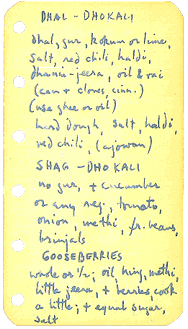 DHAL - DHOKALI
dhal, gur, kokum or lime,
salt, red chili, haldi,
dhania-jeera, oil & rai
(can + cloves, cinn.)
(use ghee or oil)
hard dough, salt, haldi,
red chili, (ajowan)
SHAG - DHOKALI
no gur, + cucumber
or any veg., tomato,
onion, methi, fr. beans,
brinjals
GOOSEBERRIES
whole or 1/2; oil, hing, methi,
little jeera, + berries, cook
a little; + equal sugar,
salt